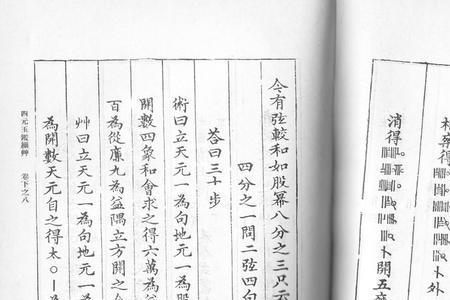 得 卜外
消得 卜開五
今有弦較和如股冪八分之三只云
四分之一問二弦四句
荅曰三十步
術曰立天元一為句地元一為股
開數四象和會求之得六萬為益
百為從廉九為益隅立方開之
艸曰立天元一為句地元一為
為開數天元自之得太〇丨
四元玉鑑細艸 卷下之八